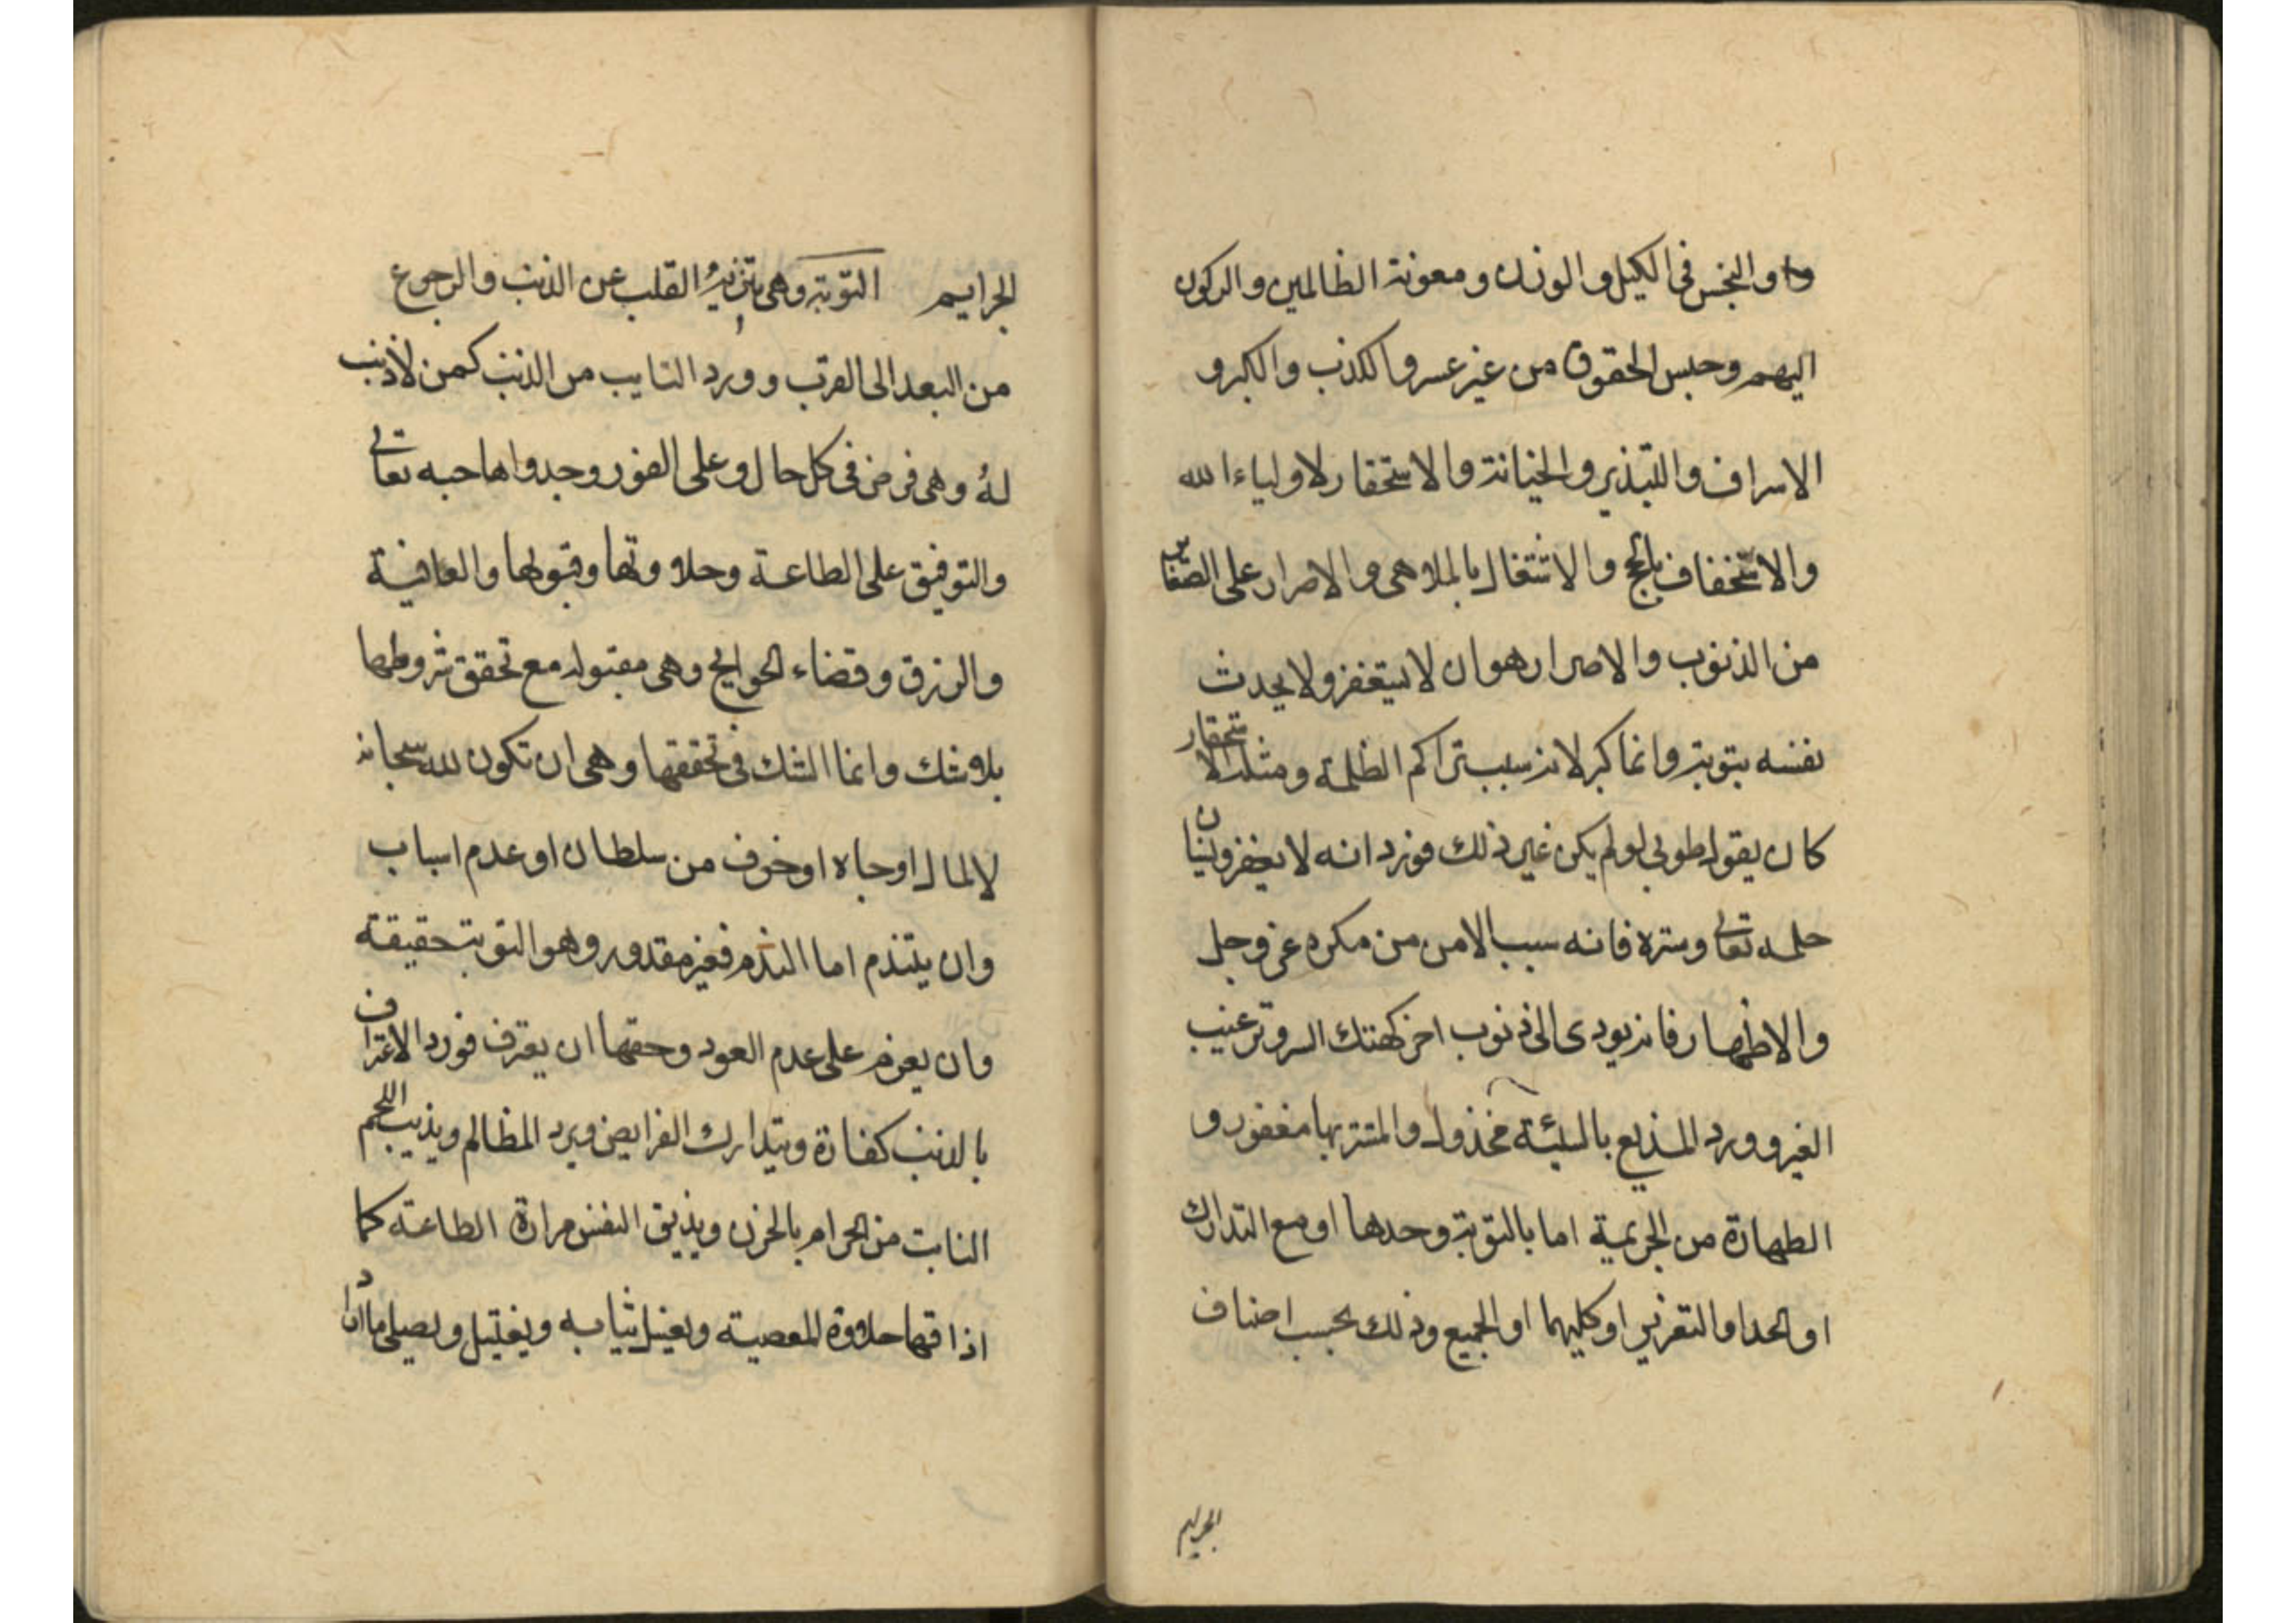 وا والبخس فی الكیل والوزن ومعونة الظالمین والركون
الیهم وحبس الحقوق من غیر عسر والكذب والكبر و
الاسراف والتبذیر والخیانة والاستحقار لاولیاء الله
والاستخفاف بالحج والاشتغال بالملاهی والاصرار علی الصغایر
من الذنوب والاصرار هو ان لا یستغفر ولا یحدث
نفسه بتوبة وانما كبر لانه سبب تراكم الظلمة ومثله الاستحقار
كان یقول طوبی لو لم یكن غیر ذلك فورد انه لا یغفر ونسیان
حلمه تعالی وستره فانه سبب الامن من مكره عز وجل
والاظهار فانه یودی الی ذنوب اخر كهتك السر وترغیب
الغیر وورد المذیع بالسیئة مخذول والمستتر بها مغفور و
الطهارة من الجریمة اما بالتوبة وحدها او مع التدارك
او الحد او التعزیر او كلیهما او الجمیع وذلك بحسب اصناف
الجرایم
الجرایم التوبة وهی تنزیهُ القلب عن الذنب والرجوع
من البعد الی القرب وورد التایب من الذنب كمن لا ذنب
لهُ وهی فرض فی كل حال وعلی الفور وجدواها حبه تعالی
والتوفیق علی الطاعة وحلاوتها وقبولها والعافیة
والرزق وقضاء الحوایج وهی مقبولة مع تحقق شروطها
بلا شك وانما الشك فی تحققها وهی ان تكون لله سبحانه
لا لمال او جاه او خوف من سلطان او عدم اسباب
وان یتندم اما الندم فغیر مقدور وهو التوبة حقیقة
وان یعزم علی عدم العود وحقها ان یعترف فورد الاعتراف
بالذنب كفارة ویتدارك الفرایض ویرد المظالم ویذیب اللحم
النابت من الحرام بالحزن ویذیق النفس مرارة الطاعة كما
اذاقها حلاوة المعصیة ویغسل ثیابه ویغتسل ویصلی ما اراد